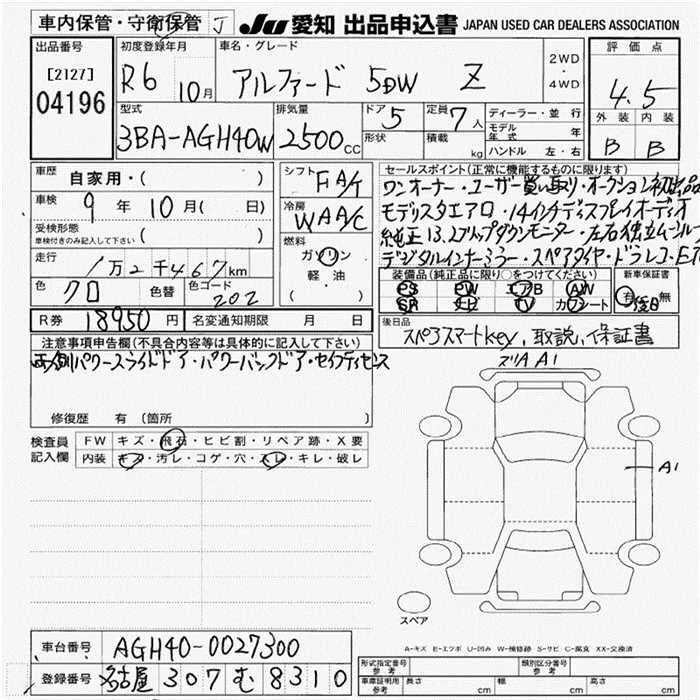 車内保管・守衛保管 J JU 愛知 出品申込書 JAPAN USED CAR DEALERS ASSOCIATION
出品番号 初度登録年月 車名・グレード 評価点
[2127] R6 10月 アルファード 5DW Z 2WD・4WD 4.5
04196 型式 排気量 ドア 5 定員 7人 ディーラー・並行 外装 内装
3BA-AGH40W 2500cc 形状 積載 kg モデル年式 年 B B
ハンドル 左・右
車歴 自家用・( ) シフト FA/T セールスポイント(正常に機能するものに限ります)
車検 9年10月( 日) 冷房 WAA/C ワンオーナー・ユーザー買い取り・オークション初出品
受検形態 車検付きのみ記入して下さい ( ) モデリスタエアロ・14インチディスプレイオーディオ
燃料 ガソリン 軽油 純正13.2フリップダウンモーター・左右独立ムーンルーフ
走行 1万2千467km デジタルインナーミラー・スペアタイヤ・ドラレコ・
色 クロ 色替 色コード 202 装備品(純正品に限り○をつけてください) 新車保証書
PS PW エアB AW 有 後日 無
SR ナビ TV カワシート
R券 18950円 名変通知期限 月 日 後日品
スペアスマートkey、取説、保証書
注意事項申告欄(不具合内容等は具体的に記入して下さい)
両側パワースライドドア・パワーバックドア・セイフティセンス
ズリA A1
修復歴 有 (箇所
検査員記入欄 FW キズ・飛石・ヒビ割・リペア跡・X要
内装 キズ・汚レ・コゲ・穴・スレ・キレ・破レ
A1
スペア
A-キズ E-エクボ U-凹み W-補修跡 S-サビ C-腐食 XX-交換済
車台番号 AGH40-0027300
登録番号 名古屋 307 む 8310
形式指定番号 参考 類別区分番号 参考
車庫証明用 参考 長さ cm 幅 cm 高さ cm